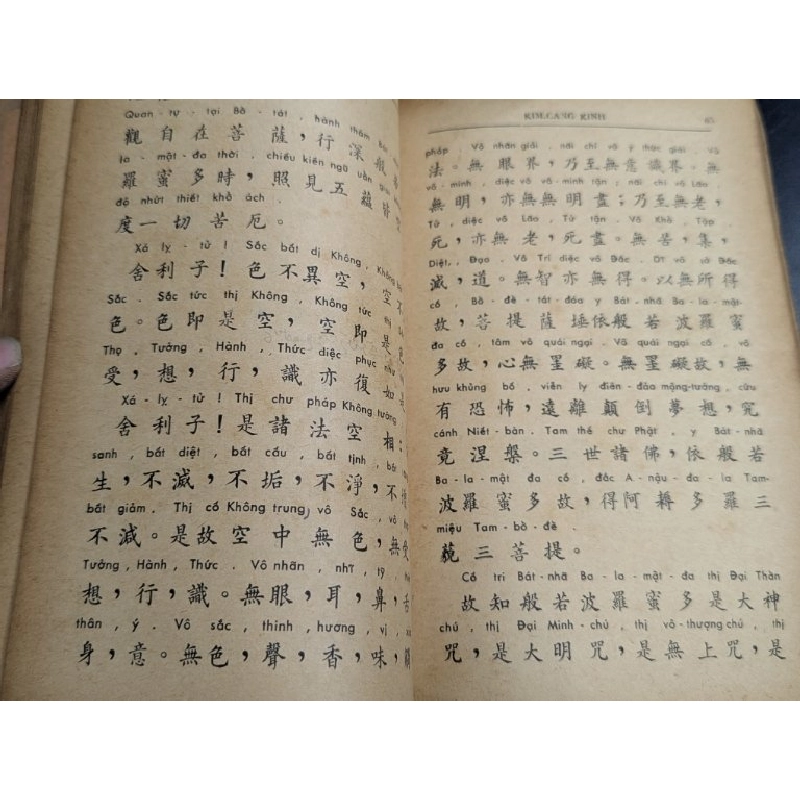 Quan-tự-tại Bồ-tát, hành thâm Bát
觀自在菩薩，行深般
la-mật-đa thời, chiếu kiến ngũ uẩn giai
羅蜜多時，照見五蘊皆
độ nhứt thiết khổ ách.
度一切苦厄。
Xá lỵ-tử! Sắc bất dị Không, Không
舍利子！色不異空，空不
Sắc. Sắc tức thị Không, Không tức
色。色即是空，空即是
Thọ, Tưởng, Hành, Thức diệc phục như
受，想，行，識亦復如
Xá-lỵ-tử! Thị chư pháp Không tướng
舍利子！是諸法空相
sanh, bất diệt, bất cấu, bất tịnh, bất
生，不滅，不垢，不淨，不
bất giảm. Thị cố Không trung vô Sắc, vô
不滅。是故空中無色，無
Tưởng, Hành, Thức. Vô nhãn, nhĩ, tỷ
想，行，識。無眼，耳，鼻，舌
thân, ý. Vô sắc, thinh, hương, vị,
身，意。無色，聲，香，味，
KIM-CANG KINH 65
pháp. Vô nhãn giải, nãi chí vô ý thức giải. Vô
法。無眼界，乃至無意識界。無
vô-minh, diệc vô vô-minh tận; nãi chí vô Lão
無明，亦無無明盡；乃至無老，
Tử, diệc vô Lão, Tử tận. Vô Khổ, Tập,
死，亦無老，死盡。無苦，集，
Diệt, Đạo. Vô Trí diệc vô Đắc. Dĩ vô sở Đắc
滅，道。無智亦無得。以無所得
cố, Bồ-đề-tát-đỏa y Bát-nhã Ba-la-mật
故，菩提薩埵依般若波羅蜜
đa cố, tâm vô quái ngại. Vô quái ngại cố, vô
多故，心無罣礙。無罣礙故，無
hưu khủng bố, viễn ly điên-đảo mộng-tưởng, cứu
有恐怖，遠離顛倒夢想，究
cánh Niết-bàn. Tam thế chư Phật, y Bát-nhã
竟涅槃。三世諸佛，依般若
Ba-la-mật đa cố, đắc A-nậu-đa-la Tam-
波羅蜜多故，得阿耨多羅三
miệu Tam-bồ-đề.
藐三菩提。
Cố tri Bát-nhã Ba-la-mật-đa thị Đại Thần
故知般若波羅蜜多是大神
chú, thị Đại Minh-chú, thị vô-thượng chú, thị
咒，是大明咒，是無上咒，是